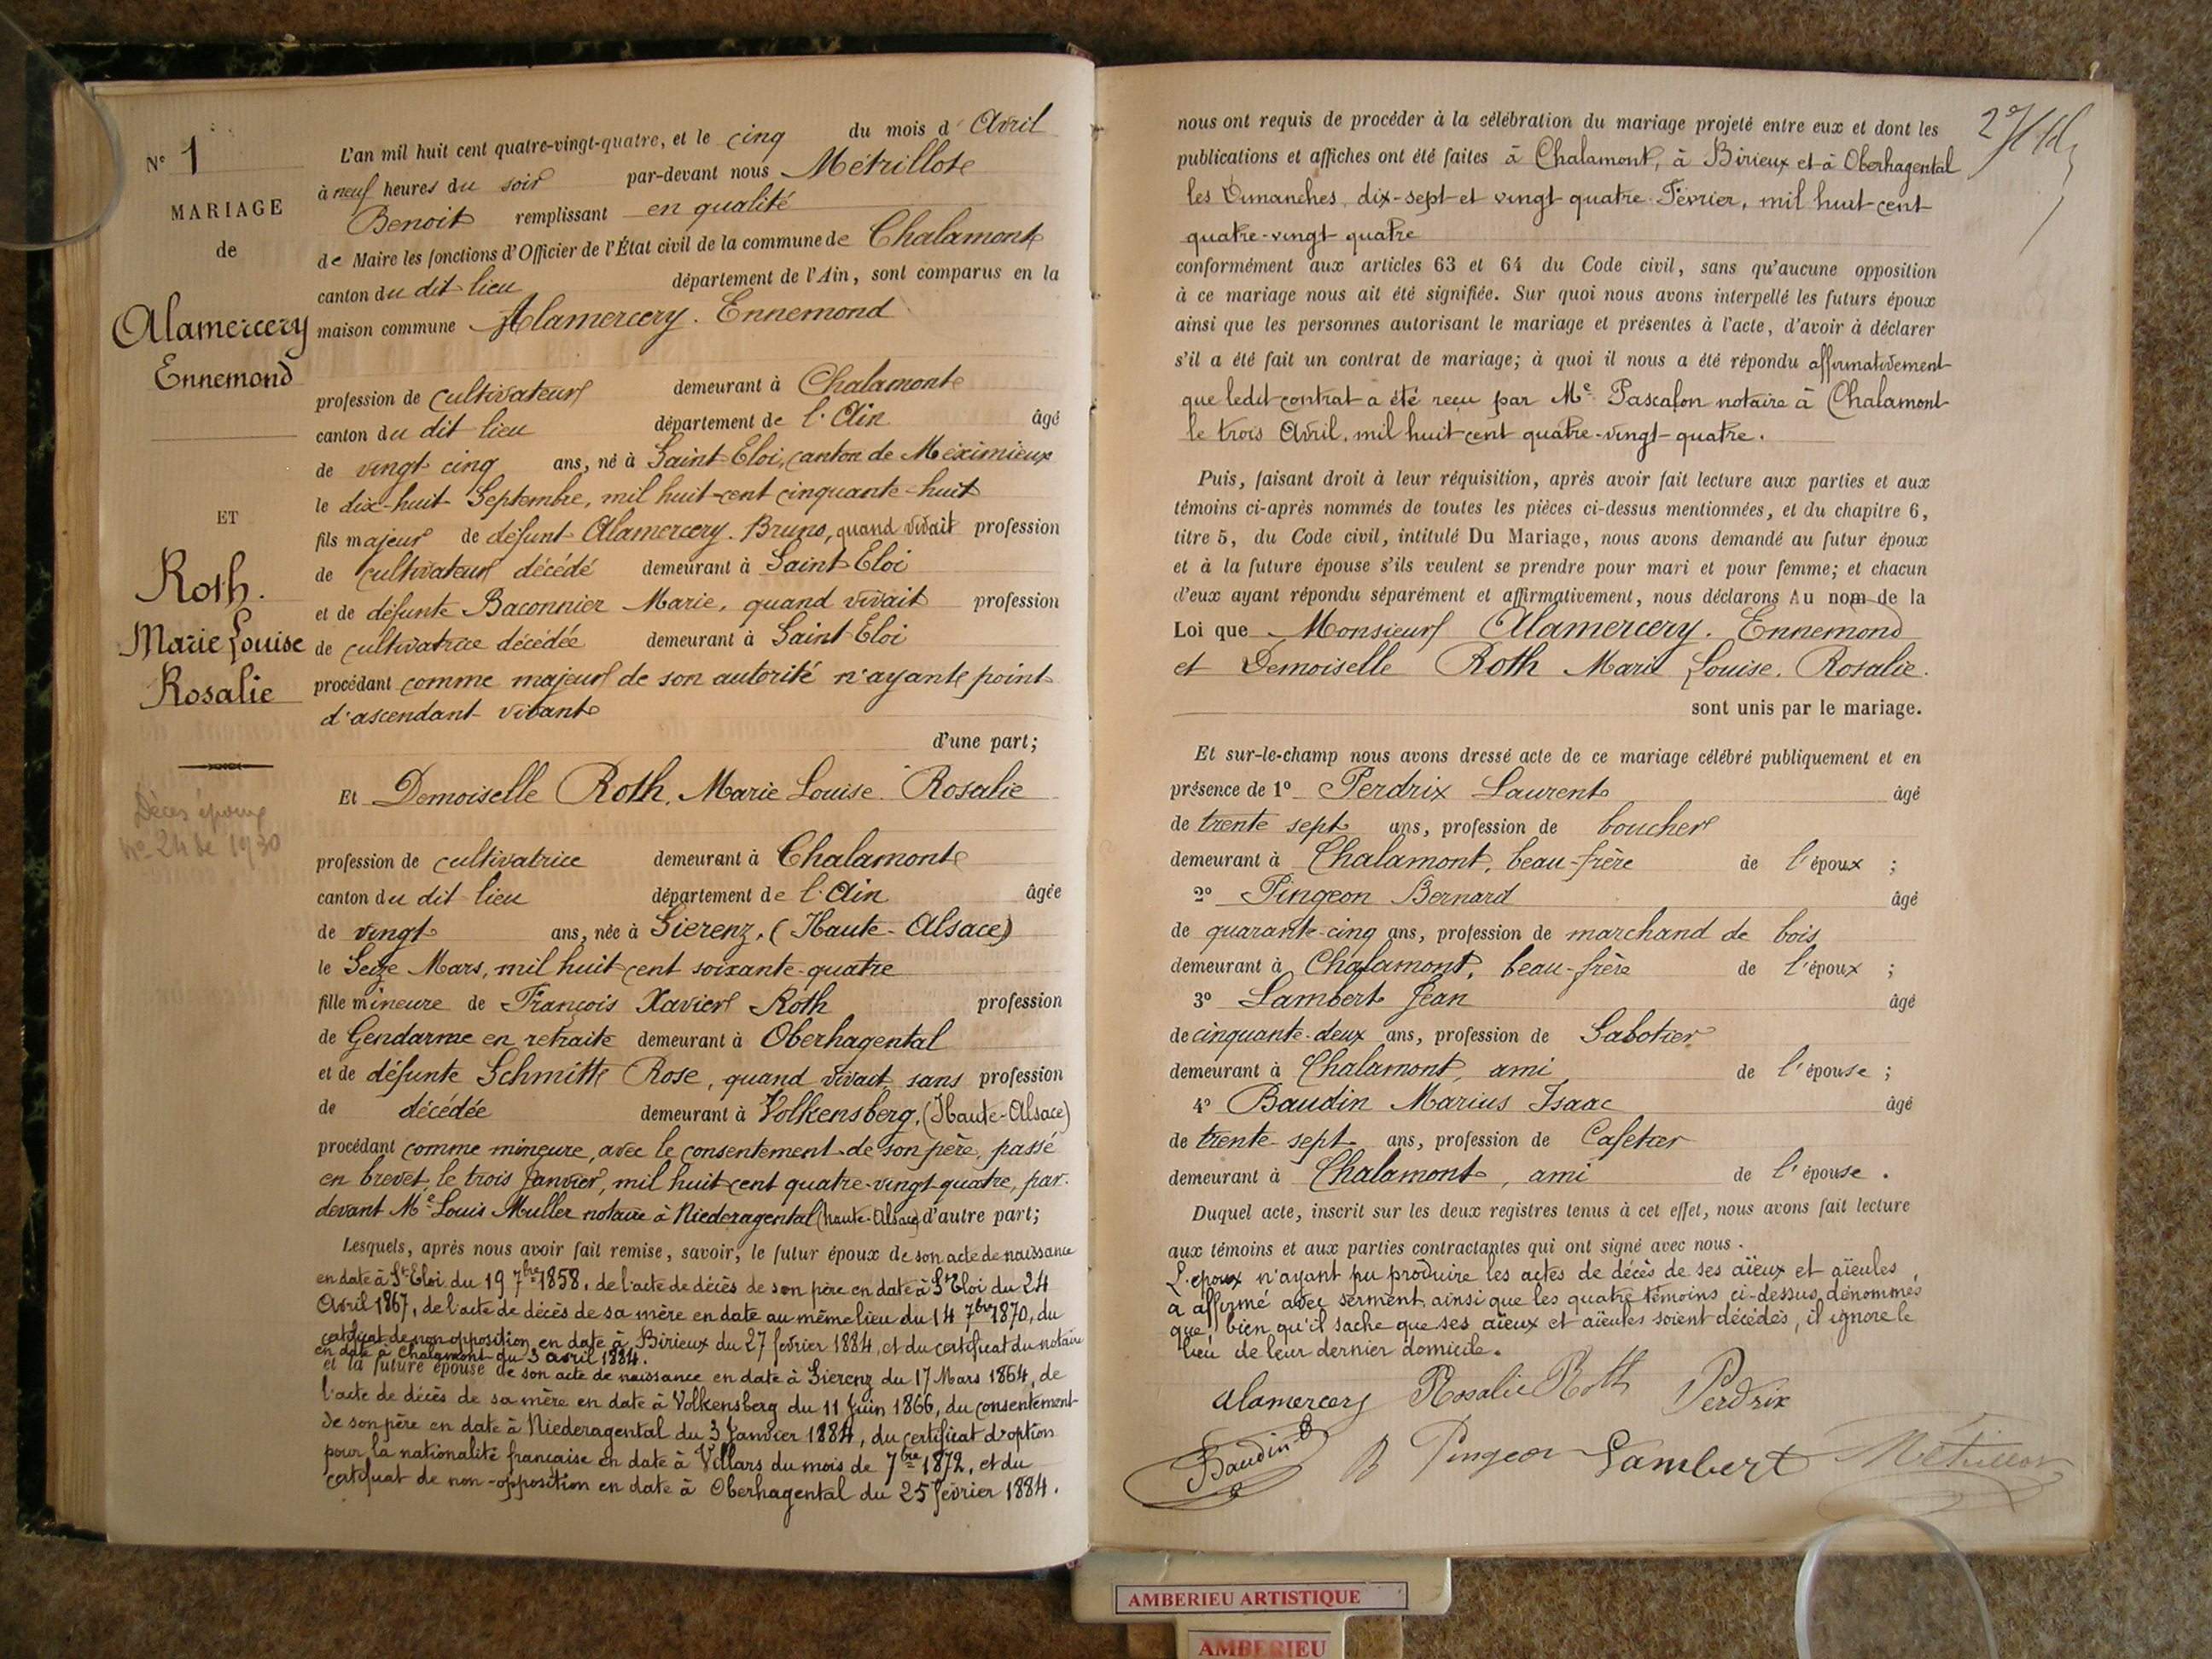 N° 1
MARIAGE
de
Alamercery
Ennemond
ET
Roth.
Marie Louise
Rosalie
Décès épouse
n° 24 de 1930
L'an mil huit cent quatre-vingt-quatre, et le cinq du mois d'Avril
à neuf heures du soir par-devant nous Métrillot
Benoit remplissant en qualité
de Maire les fonctions d'Officier de l'État civil de la commune de Chalamont
canton du dit lieu département de l'Ain, sont comparus en la
maison commune Alamercery. Ennemond
profession de cultivateur demeurant à Chalamont
canton du dit lieu département de l'Ain âgé
de vingt cinq ans, né à Saint-Eloi, canton de Méximieux
le dix-huit Septembre, mil huit-cent cinquante-huit
fils majeur de défunt Alamercery. Bruno, quand vivait profession
de cultivateur décédé demeurant à Saint-Eloi
et de défunte Baconnier Marie, quand vivait profession
de cultivatrice décédée demeurant à Saint-Eloi
procédant comme majeur de son autorité n'ayant point
d'ascendant vivant
d'une part;
Et Demoiselle Roth, Marie Louise. Rosalie
profession de cultivatrice demeurant à Chalamont
canton du dit lieu département de l'Ain âgée
de vingt ans, née à Sierenz, (Haute-Alsace)
le Seize Mars, mil huit cent soixante-quatre
fille mineure de François Xavier Roth profession
de Gendarme en retraite demeurant à Oberhagental
et de défunte Schmitt Rose, quand vivait, sans profession
de décédée demeurant à Volkensberg, (Haute-Alsace)
procédant comme mineure, avec le consentement de son père, passé
en brevet, le trois Janvier, mil huit cent quatre-vingt-quatre, par-
devant Me Louis Muller notaire à Niederagental (haute-Alsace) d'autre part;
Lesquels, après nous avoir fait remise, savoir; le futur époux de son acte de naissance
en date à St Eloi du 19 7bre 1858, de l'acte de décès de son père en date à St Eloi du 24
Avril 1867, de l'acte de décès de sa mère en date au même lieu du 14 7bre 1870, du
certificat de non opposition en date à Birieux du 27 février 1884, et du certificat du notaire
en date à Chalamont du 3 avril 1884.
et la future épouse de son acte de naissance en date à Sierenz du 17 Mars 1864, de
l'acte de décès de sa mère en date à Volkensberg du 11 Juin 1866, du consentement
de son père en date à Niederagental du 3 Janvier 1884, du certificat d'option
pour la nationalité française en date à Villars du mois de 7bre 1872, et du
certificat de non-opposition en date à Oberhagental du 25 février 1884.
nous ont requis de procéder à la célébration du mariage projeté entre eux et dont les
publications et affiches ont été faites à Chalamont, à Birieux et à Oberhagental
les Dimanches, dix-sept et vingt quatre Février, mil huit-cent
quatre-vingt quatre
conformément aux articles 63 et 64 du Code civil, sans qu'aucune opposition
à ce mariage nous ait été signifiée. Sur quoi nous avons interpellé les futurs époux
ainsi que les personnes autorisant le mariage et présentes à l'acte, d'avoir à déclarer
s'il a été fait un contrat de mariage; à quoi il nous a été répondu affirmativement
que ledit contrat a été reçu par Me Pascalon notaire à Chalamont
le trois Avril, mil huit cent quatre-vingt-quatre.
Puis, faisant droit à leur réquisition, après avoir fait lecture aux parties et aux
témoins ci-après nommés de toutes les pièces ci-dessus mentionnées, et du chapitre 6,
titre 5, du Code civil, intitulé Du Mariage, nous avons demandé au futur époux
et à la future épouse s'ils veulent se prendre pour mari et pour femme; et chacun
d'eux ayant répondu séparément et affirmativement, nous déclarons Au nom de la
Loi que Monsieur Alamercery. Ennemond
et Demoiselle Roth Marie Louise. Rosalie.
sont unis par le mariage.
Et sur-le-champ nous avons dressé acte de ce mariage célébré publiquement et en
présence de 1° Perdrix Laurent âgé
de trente sept ans, profession de boucher
demeurant à Chalamont, beau-frère de l'époux ;
2° Pingeon Bernard âgé
de quarante-cinq ans, profession de marchand de bois
demeurant à Chalamont, beau-frère de l'époux ;
3° Lambert Jean âgé
de cinquante-deux ans, profession de Sabotier
demeurant à Chalamont, ami de l'épouse ;
4° Baudin Marius Isaac âgé
de trente-sept ans, profession de Cafetier
demeurant à Chalamont, ami de l'épouse.
Duquel acte, inscrit sur les deux registres tenus à cet effet, nous avons fait lecture
aux témoins et aux parties contractantes qui ont signé avec nous.
L'époux n'ayant pu produire les actes de décès de ses aïeux et aïeules,
a affirmé avec serment, ainsi que les quatre témoins ci-dessus dénommés
que, bien qu'il sache que ses aïeux et aïeules soient décédés, il ignore le
lieu de leur dernier domicile.
Alamercery Rosalie Roth Perdrix
Baudin B Pingeon Lambert Métrillot
AMBERIEU ARTISTIQUE
AMBERIEU